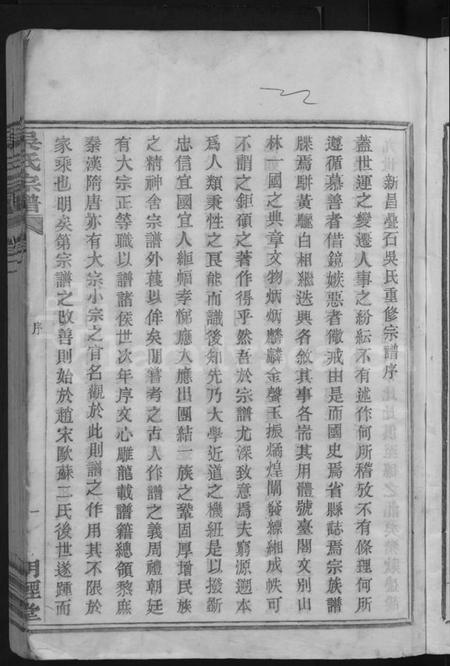 新昌叠石吳氏重修宗譜序
蓋世運之變遷人事之紛紜不有述作何所稽攷不有條理何所
遵循慕善者借鏡嫉惡者儆戒由是而國史焉省縣誌焉宗族譜
牒焉駢黃驪白相繼迭興各敘其事各崇其用體號臺閣文別山
林一國之典章文物炳炳麟麟金聲玉振燏煌闡發縹緗成帙可
不謂之鉅碩之著作得乎然吾於宗譜尤深致意焉夫窮源遡本
為人類秉性之良能而識後知先乃大學近道之機紐是以撥新
忠信宜國宜人絁幅孝悌應人應出團結一族之鞏固厚增民族
之精神舍宗譜外蔑以侔矣閒嘗考之古人作譜之義周禮朝廷
有大宗正等職以譜諸侯世次年序文心雕龍載譜籍總領黎庶
秦漢隋唐亦有大宗小宗之官名觀於此則譜之作用其不限於
家乘也明矣第宗譜之改善則始於趙宋歐蘇二氏後世遂踵而
吳氏宗譜
序
一
明經堂